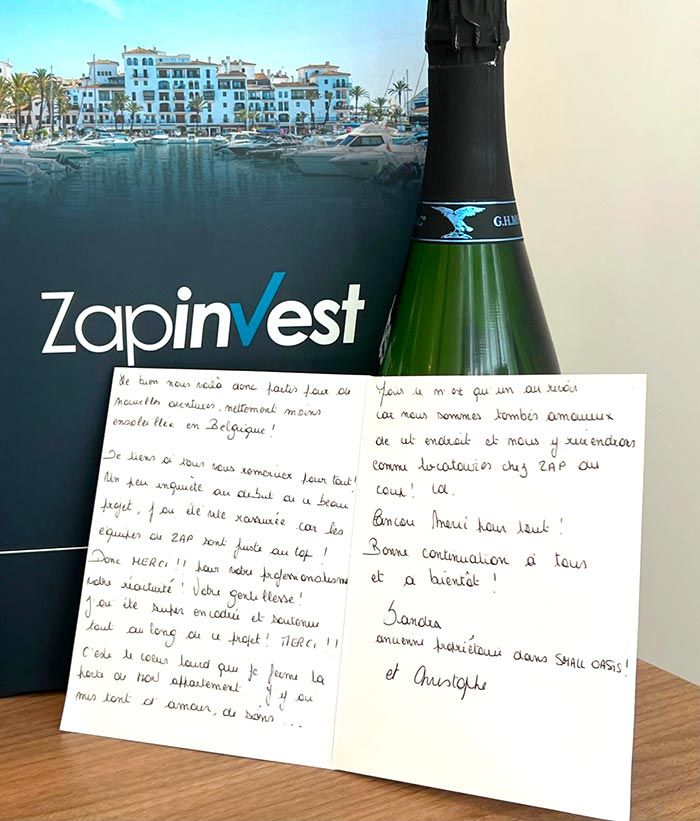 Zapinvest
G.H.M
He bien nous voilà donc partis pour de
nouvelles aventures, nettement moins
ensoleillée en Belgique!
Je tiens à tous vous remercier pour tout!
Un peu inquiète au début de ce beau
projet, j'ai été vite rassurée car les
équipes de ZAP sont juste au top!
Donc MERCI!! pour votre professionalisme
votre réactivité! Votre gentillesse!
J'ai été super encadrée et soutenue
tout au long de ce projet! MERCI!!
C'est le coeur lourd que je ferme la
porte de MON appartement. J'y ai
mis tant d'amour, de soins...
Mais ce n'est qu'un au revoir
car nous sommes tombés amoureux
de cet endroit et nous y reviendrons
comme locataires chez ZAP du
coup!
Encore Merci pour tout!
Bonne continuation à tous
et à bientôt!
Sandra
ancienne propriétaire dans SMALL OASIS!
et Christophe